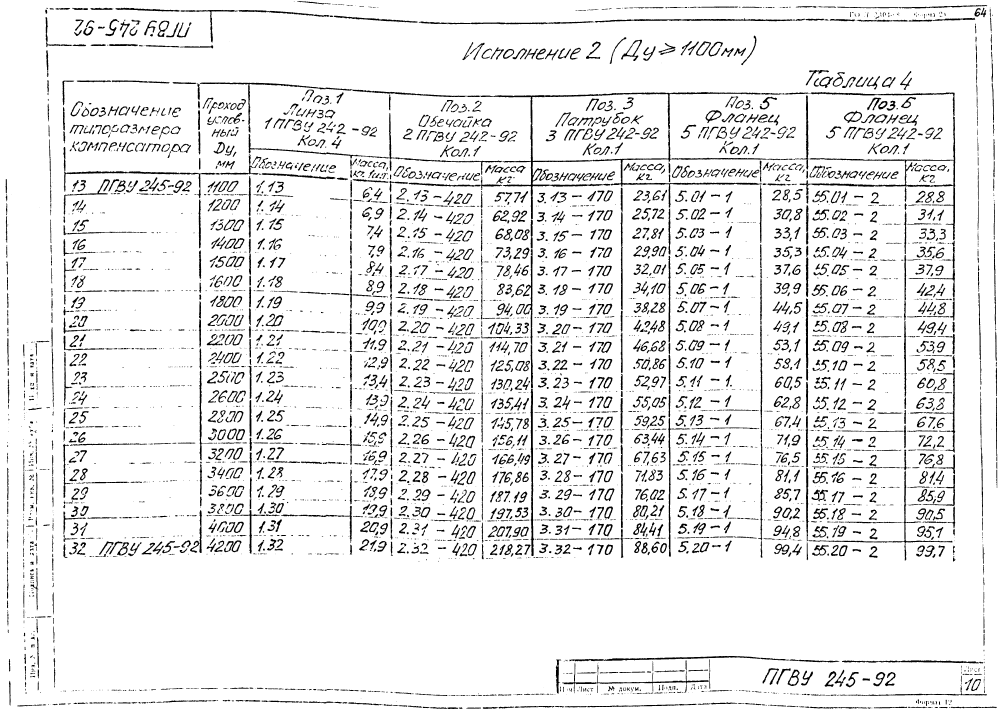 64
ПГВУ 245-92
Исполнение 2 (Ду ≥ 1100мм)
Таблица 4
Обозначение типоразмера компенсатора | Проход условный Ду, мм | Поз.1 Линза 1 ПГВУ 242-92 Кол. 4 | Поз.2 Обечайка 2 ПГВУ 242-92 Кол.1 | Поз. 3 Патрубок 3 ПГВУ 242-92 Кол.1 | Поз. 5 Фланец 5 ПГВУ 242-92 Кол.1 | Поз.6 Фланец 5 ПГВУ 242-92 Кол.1
Обозначение | Масса, кг 1шт. | Обозначение | Масса кг | Обозначение | Масса, кг | Обозначение | Масса, кг | Обозначение | Масса, кг
13 ПГВУ 245-92 1100 1.13 6,4 2.13-420 57,71 3.13-170 23,61 5.01-1 28,5 55.01-2 28,8
14 1200 1.14 6,9 2.14-420 62,92 3.14-170 25,72 5.02-1 30,8 55.02-2 31,1
15 1300 1.15 7,4 2.15-420 68,08 3.15-170 27,81 5.03-1 33,1 55.03-2 33,3
16 1400 1.16 7,9 2.16-420 73,29 3.16-170 29,90 5.04-1 35,3 55.04-2 35,6
17 1500 1.17 8,4 2.17-420 78,46 3.17-170 32,01 5.05-1 37,6 55.05-2 37,9
18 1600 1.18 8,9 2.18-420 83,62 3.18-170 34,10 5.06-1 39,9 55.06-2 42,4
19 1800 1.19 9,9 2.19-420 94,00 3.19-170 38,28 5.07-1 44,5 55.07-2 44,8
20 2000 1.20 10,9 2.20-420 104,33 3.20-170 42,48 5.08-1 49,1 55.08-2 49,4
21 2200 1.21 11,9 2.21-420 114,70 3.21-170 46,68 5.09-1 53,1 55.09-2 53,9
22 2400 1.22 12,9 2.22-420 125,08 3.22-170 50,86 5.10-1 58,1 55.10-2 58,5
23 2500 1.23 13,4 2.23-420 130,24 3.23-170 52,97 5.11-1 60,5 55.11-2 60,8
24 2600 1.24 13,9 2.24-420 135,41 3.24-170 55,05 5.12-1 62,8 55.12-2 63,8
25 2800 1.25 14,9 2.25-420 145,78 3.25-170 59,25 5.13-1 67,4 55.13-2 67,6
26 3000 1.26 15,9 2.26-420 156,11 3.26-170 63,44 5.14-1 71,9 55.14-2 72,2
27 3200 1.27 16,9 2.27-420 166,49 3.27-170 67,63 5.15-1 76,5 55.15-2 76,8
28 3400 1.28 17,9 2.28-420 176,86 3.28-170 71,83 5.16-1 81,1 55.16-2 81,4
29 3600 1.29 18,9 2.29-420 187,19 3.29-170 76,02 5.17-1 85,7 55.17-2 85,9
30 3800 1.30 19,9 2.30-420 197,53 3.30-170 80,21 5.18-1 90,2 55.18-2 90,5
31 4000 1.31 20,9 2.31-420 207,90 3.31-170 84,41 5.19-1 94,8 55.19-2 95,1
32 ПГВУ 245-92 4200 1.32 21,9 2.32-420 218,27 3.32-170 88,60 5.20-1 99,4 55.20-2 99,7
Изм Лист № докум. Подп. Дата
ПГВУ 245-92
Лист
10
Формат 12